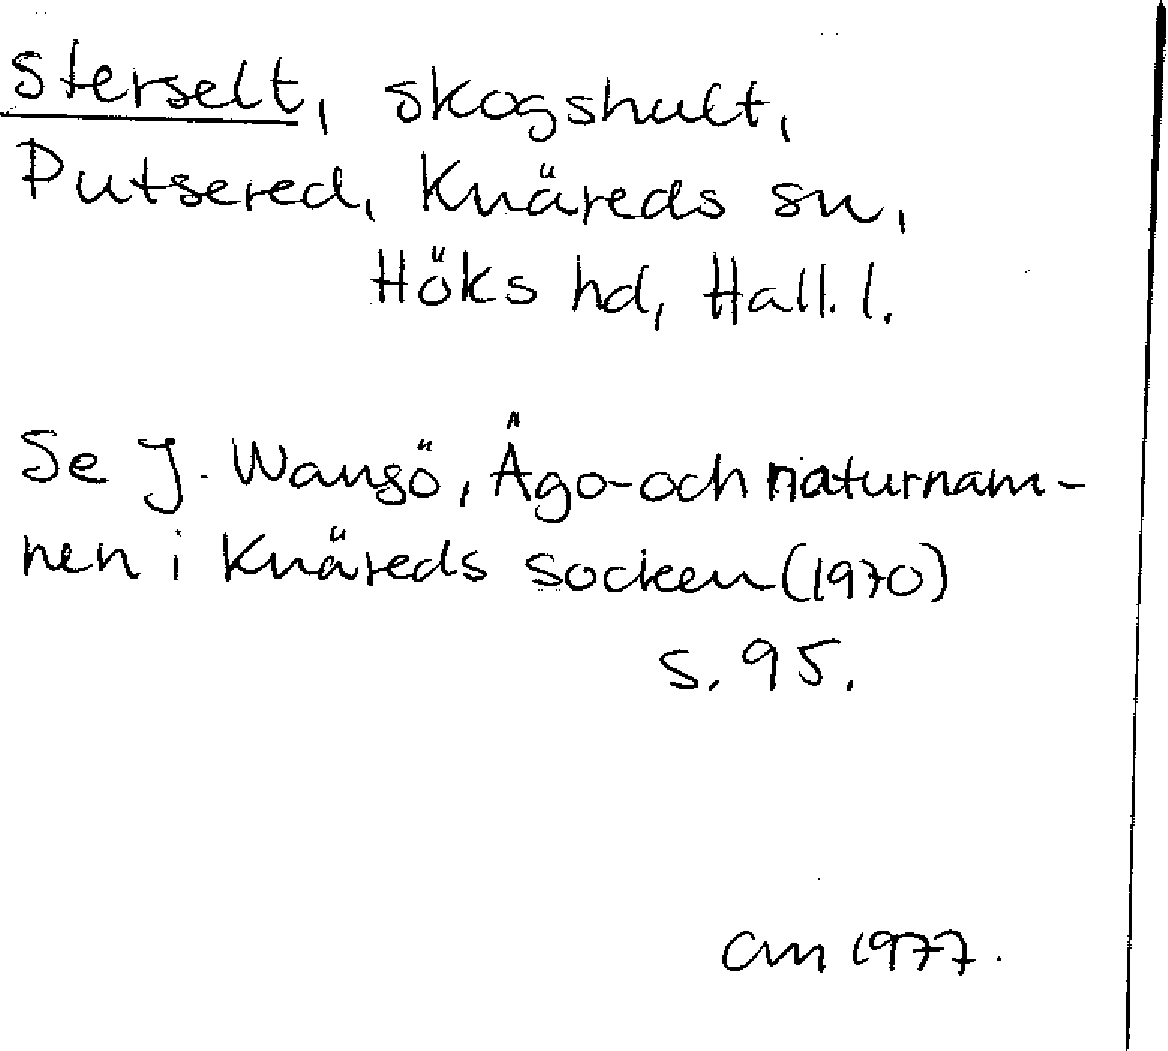 Sterselt, skogshult,
Putsered, Knäreds sn,
Höks hd, Hall. l.
Se J. Wangö, Ägo- och naturnam-
nen i Knäreds socken (1970)
s. 95.
CM 1977.